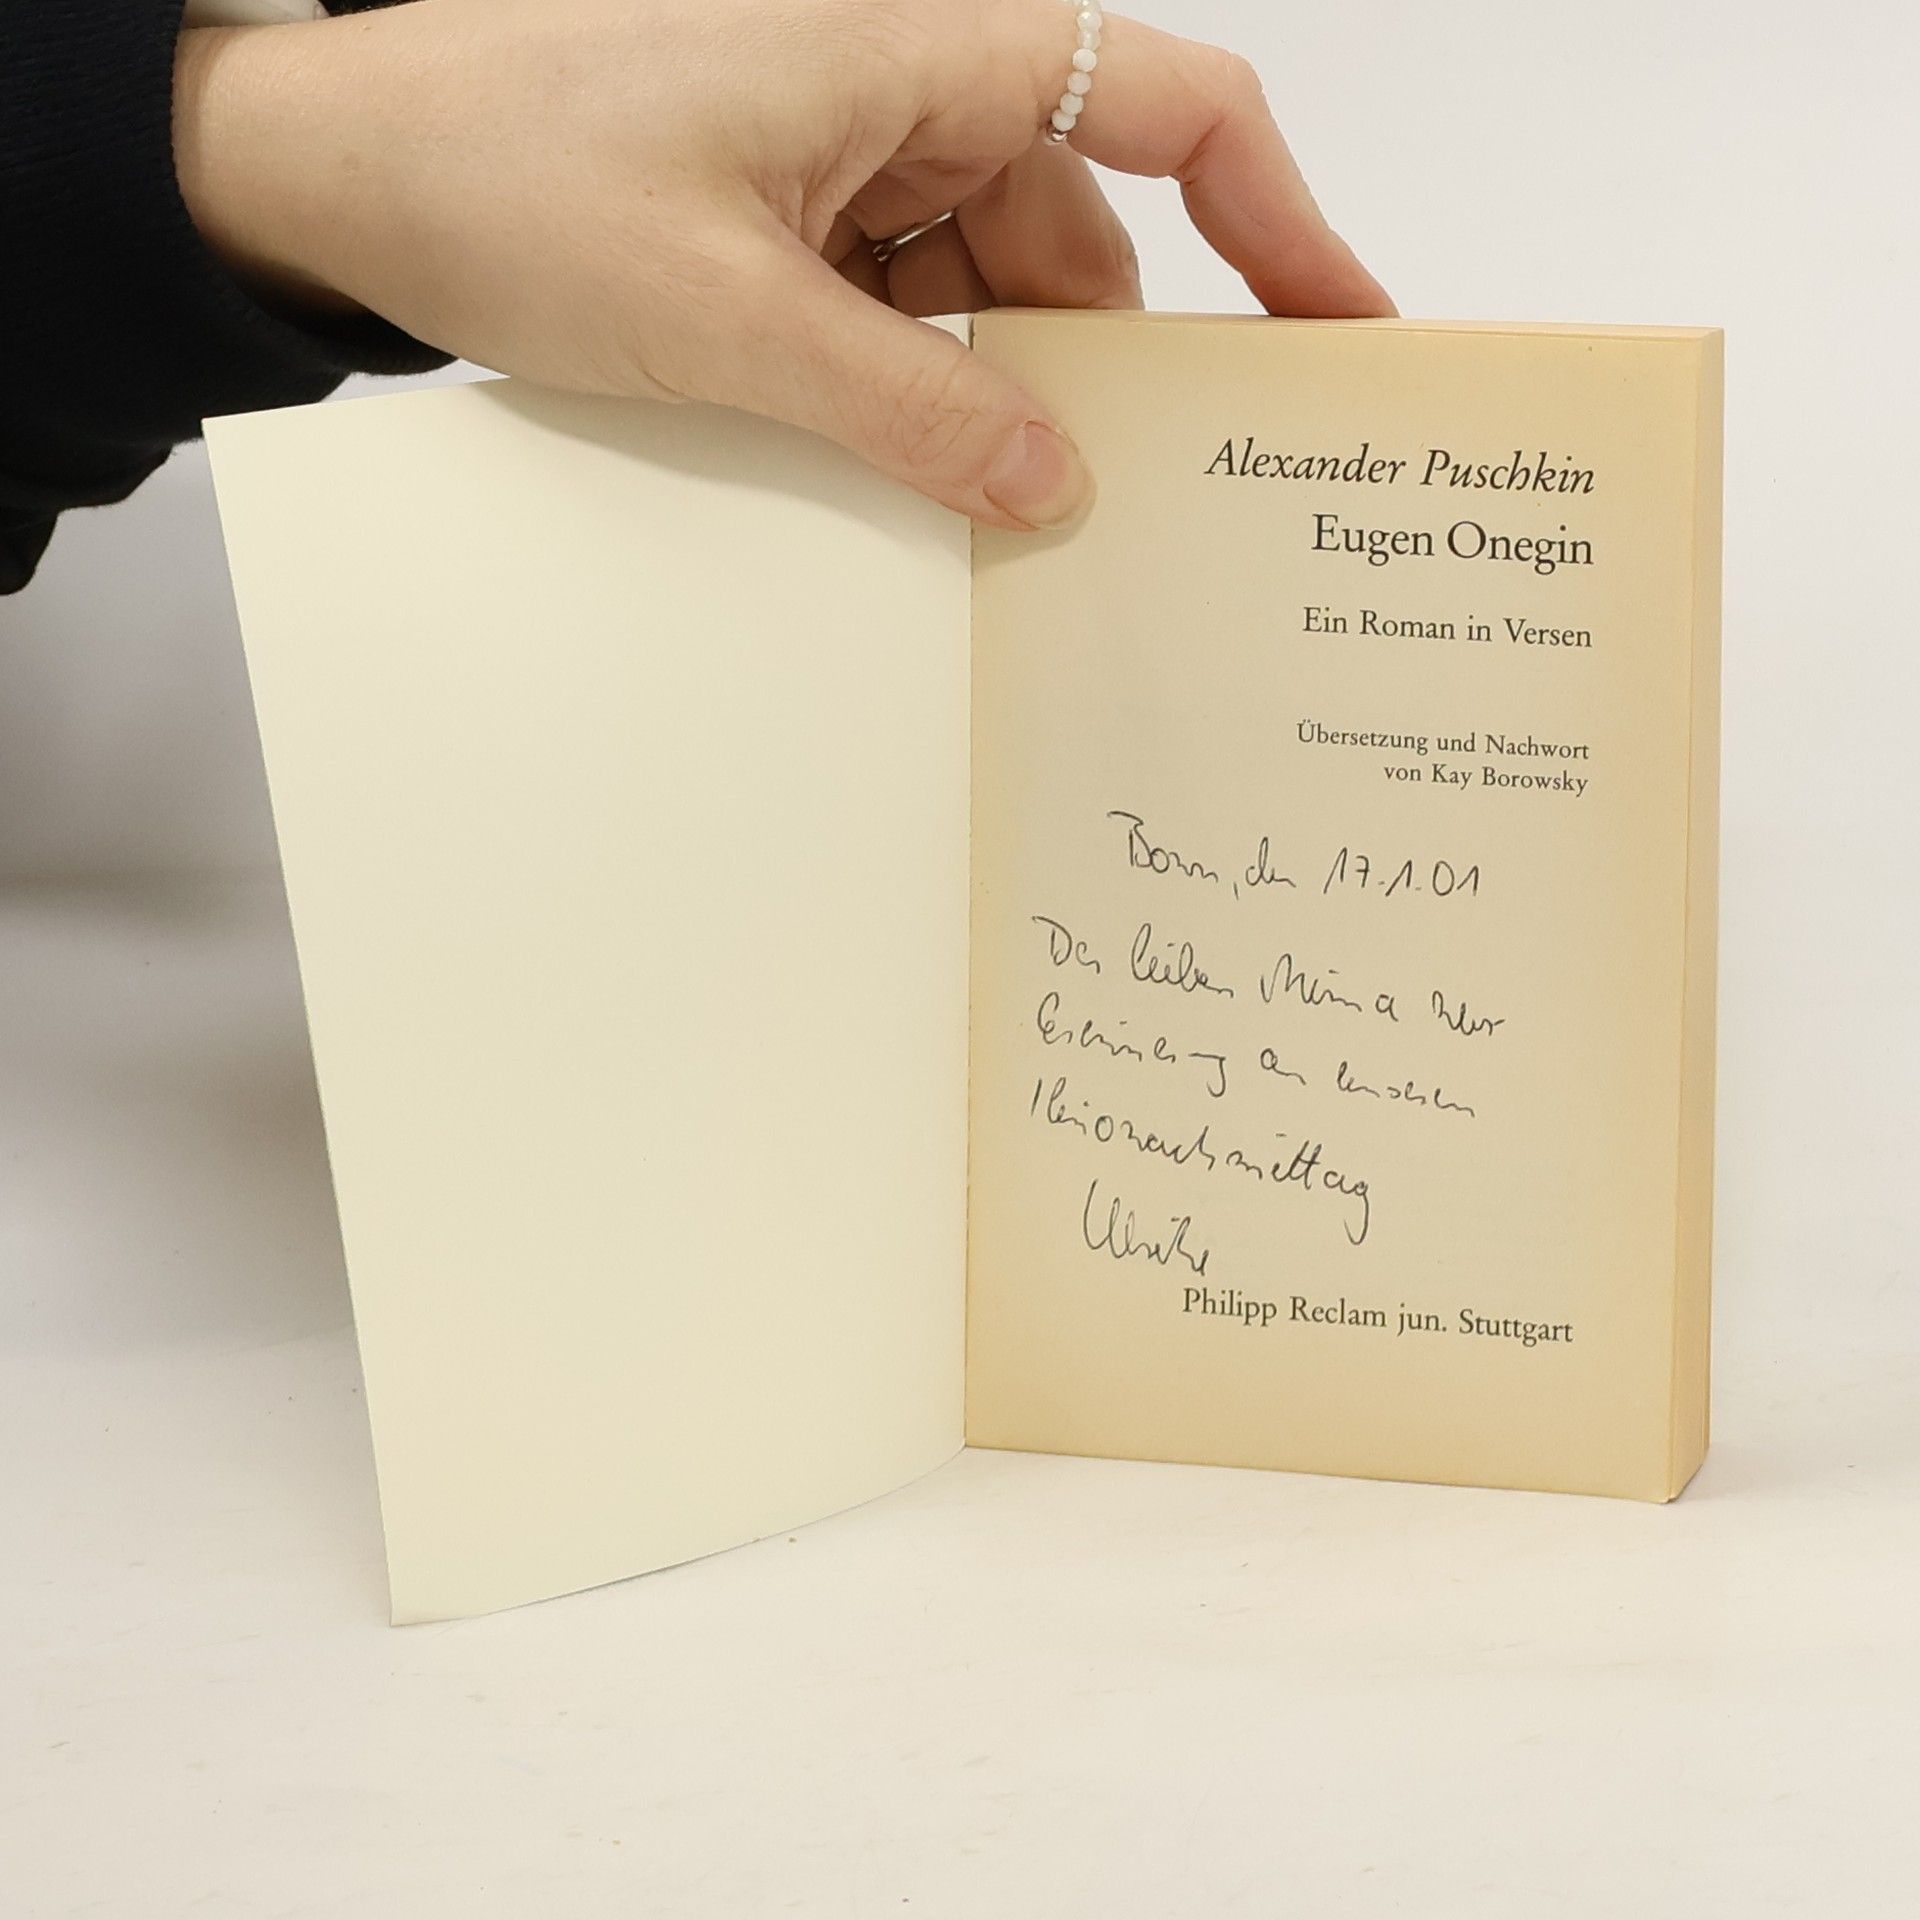 Alexander Puschkin
Eugen Onegin
Ein Roman in Versen
Übersetzung und Nachwort
von Kay Borowsky
Bonn, den 17.1.01
Der lieben Mima zur
Erinnerung an unseren
Kinonachmittag
Ulrike
Philipp Reclam jun. Stuttgart